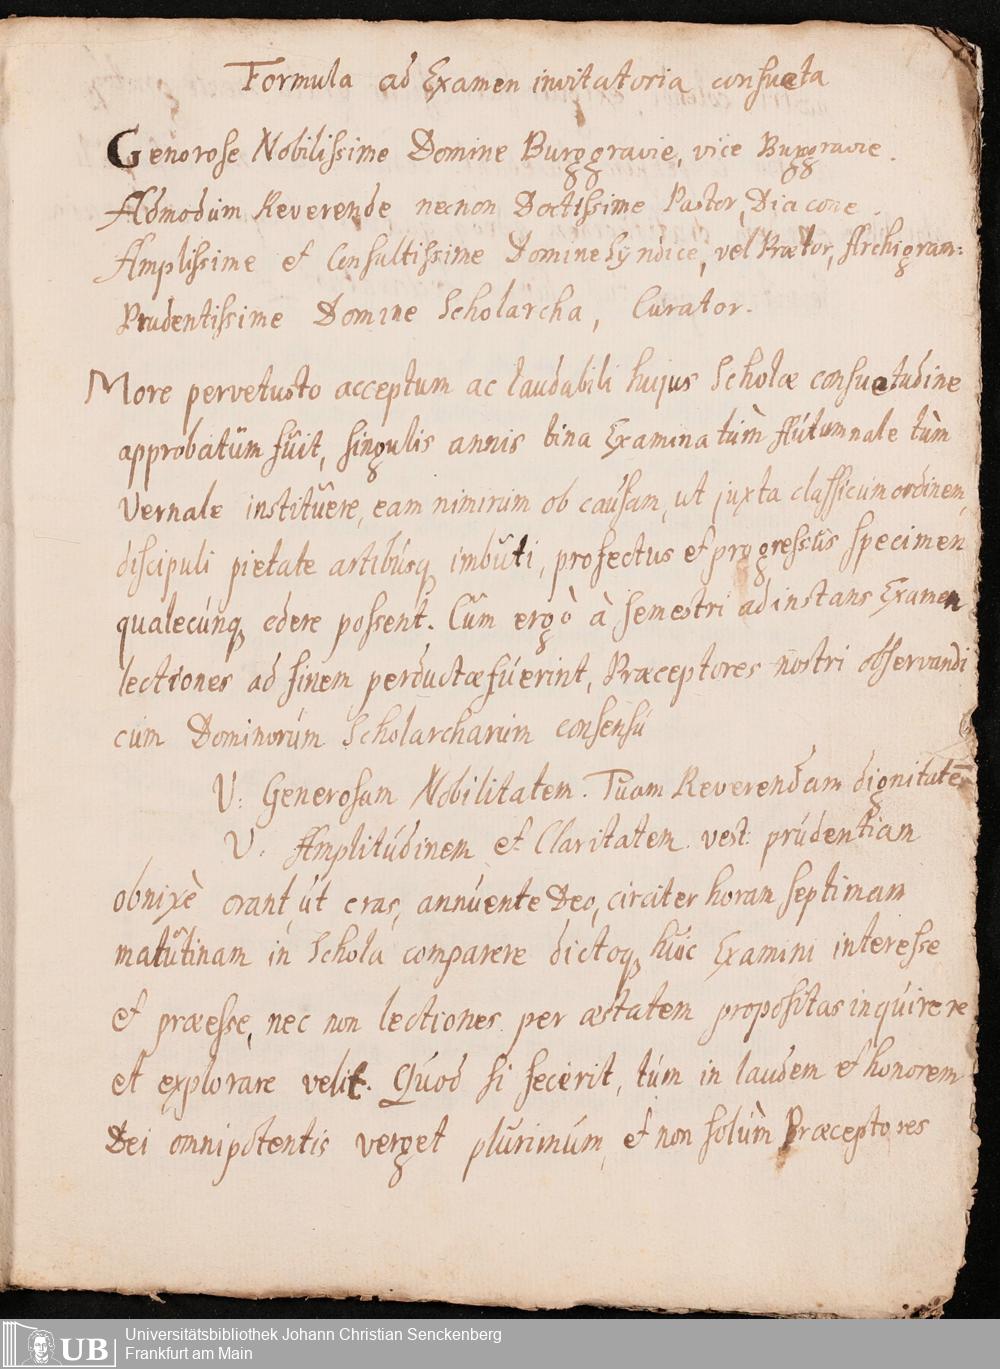 Formula ad Examen invitatoria consueta
Generose Nobilissime Domine Burggravie, vice Burggravie.
Admodum Reverende necnon Doctissime Pastor, Diacone.
Amplissime et Consultissime Domine Syndice, vel Prætor, Archigram:
Prudentissime Domine Scholarcha, Curator.
More pervetusto acceptum ac laudabili hujus Scholæ consuetudine
approbatum fuit, singulis annis bina Examina tùm Autumnale tùm
Vernale instituere, eam nimirum ob causam, ut juxta classicum ordinem,
discipuli pietate artibusq, imbuti, profectus et progressus specimen
qualecunq, edere possent. Cum ergò à semestri ad instans Examen
lectiones ad finem perductæ fuerint, Præceptores nostri observandi
cum Dominorum Scholarcharum consensu
V: Generosam Nobilitatem. Tuam Reverendam dignitatē
V. Amplitudinem et Claritatem vest: prudentiam
obnixè orant, ut cras, annuente Deo, circiter horam septimam
matutinam in Schola comparere dictoq, huic Examini interesse
et præesse, nec non lectiones per æstatem propositas inquirere
et explorare velit. Quod si fecerit, tum in laudem et honorem
Dei omnipotentis verget plurimum, et non solùm Præceptores
Universitätsbibliothek Johann Christian Senckenberg
Frankfurt am Main
UB